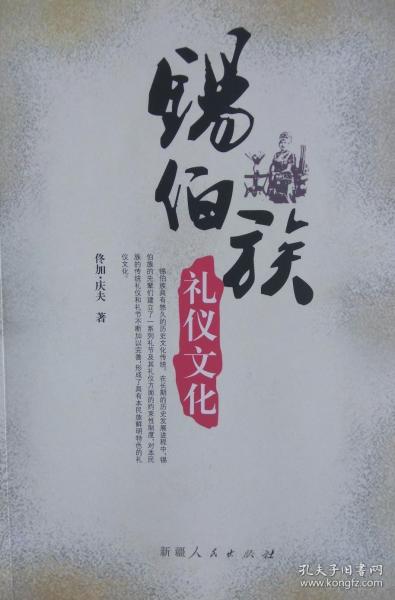 锡伯族
礼仪文化
佟加·庆夫 著
锡伯族具有悠久的历史文化传统。在长期的历史发展进程中，锡
伯族的先辈们建立了一系列礼节及其礼仪方面的约束性制度，对本民
族的传统礼仪和礼节不断加以完善，形成了具有本民族鲜明特色的礼
仪文化。
新疆人民出版社
孔夫子旧书网
www.kongfz.com